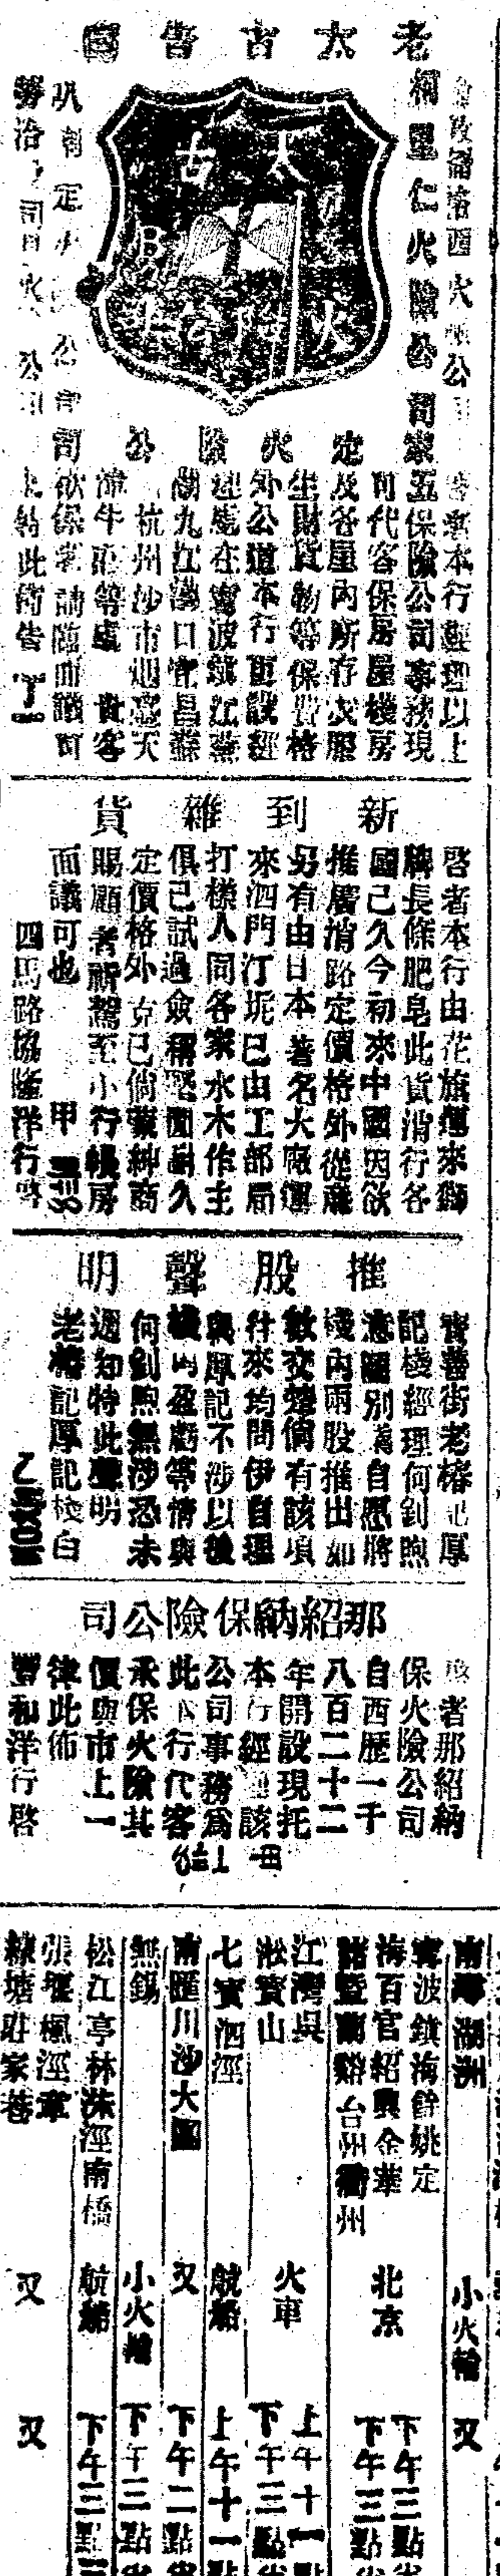 老太古告白
太古
火險公司
柯里仁火險公司
定火險公司
本行經理以上
五保險公司事務現
可代客保房屋棧房
及各屋內所存衣服
生財貨物等保費格
外公道本行更設經
理處在寧波鎮江蕪
湖九江漢口宜昌
杭州沙市烟臺天
津牛莊等處 貴客
欲保者請臨面議可
新到雜貨
啓者本行由花旗運來獅
牌長條肥皂此貨消行各
國已久今初來中國因欲
推廣消路定價格外從廉
另有由日本著名大廠運
來泗門汀坭已由工部局
打樣人同各家水木作主
俱已試過僉稱堅固耐久
定價格外克已倘蒙紳商
賜顧者祈駕至小行帳房
面議可也 甲
四馬路協隆洋行啓
推股聲明
寶善街老椿記厚
記棧經理何釗煦
意圖別業自愿將
棧內兩股推出如
數交楚倘有該項
往來均問伊自理
與厚記不涉以後
棧內盈虧等情與
何釗煦無涉恐未
週知特此聲明
老椿記厚記棧白
那紹納保險公司
啓者那紹納
保火險公司
自西歷一千
八百二十二
年開設現托
本行經理該
公司事務爲
此本行代客
承保火險其
價與市上一
律此佈
豐和洋行啓
南潯 湖洲 小火輪 又
寧波鎮海餘姚定
海百官紹興金華
諸暨蘭谿台州衢州 北京 下午三點 下午三點
江灣吳
淞寶山 火車 上午十一點 下午三點
七寶泗涇 航船 上午十一點
南匯川沙大團 又 下午二點
無錫 小火輪 下午三點
松江亭林洙涇南橋 航船 下午三點
張堰楓涇章
練塘莊家巷 又 又